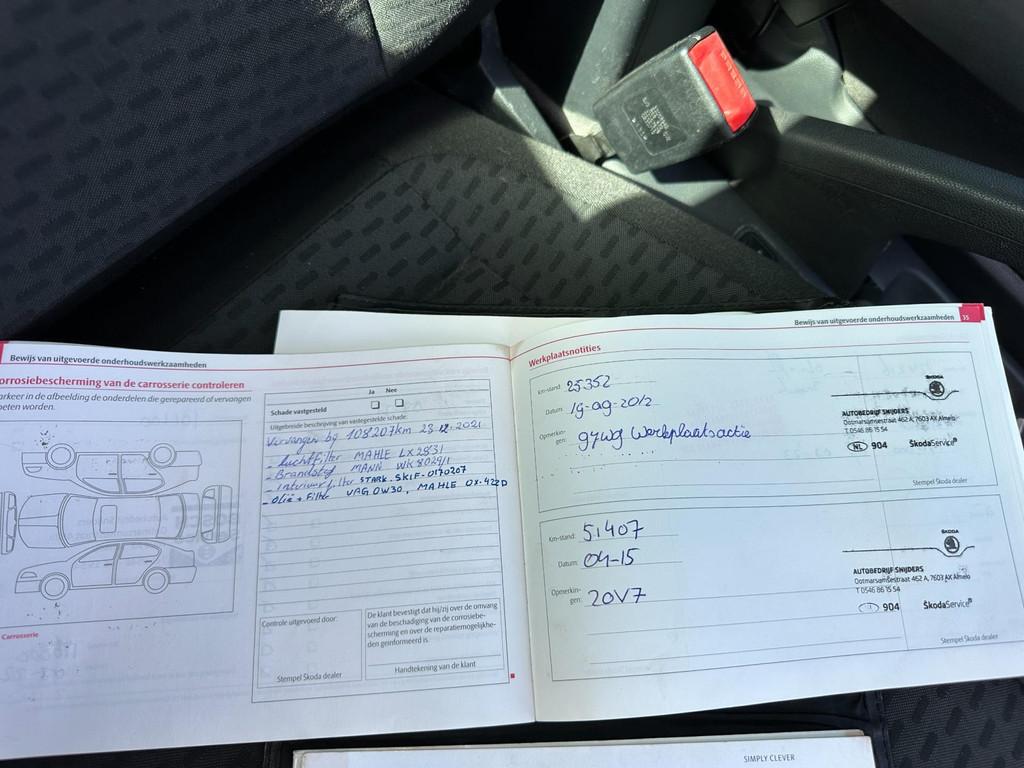 Bewijs van uitgevoerde onderhoudswerkzaamheden
orrosiebescherming van de carrosserie controleren
arkeer in de afbeelding de onderdelen die gerepareerd of vervangen
oeten worden.
Carrosserie
Ja Nee
Schade vastgesteld
Uitgebreide beschrijving van vastgestelde schade:
Vervangen bij 108207km 23.12.2021
- Luchtfilter MAHLE LX2831
- Brandstof MANN WK8029/1
- Intriuurfilter STARK. SKIF-0170207
- Olie + Filter VAG 0W30, MAHLE OX-422D
Controle uitgevoerd door:
Stempel Škoda dealer
De klant bevestigt dat hij/zij over de omvang
van de beschadiging van de corrosiebe-
scherming en over de reparatiemogelijkhe-
den geïnformeerd is.
Handtekening van de klant
Bewijs van uitgevoerde onderhoudswerkzaamheden 35
Werkplaatsnotities
Km-stand: 25352
Datum: 19-09-2012
Opmerkin-
gen: 97wg Werkplaatsactie
ŠKODA
AUTOBEDRIJF SNIJDERS
Ootmarsumsestraat 462 A, 7603 AK Almelo
T 0546 86 15 54
NL 904 ŠkodaService®
Stempel Škoda dealer
Km-stand: 51407
Datum: 04-15
Opmerkin-
gen: 20V7
ŠKODA
AUTOBEDRIJF SNIJDERS
Ootmarsumsestraat 462 A, 7603 AK Almelo
T 0546 86 15 54
904 ŠkodaService®
Stempel Škoda dealer
SIMPLY CLEVER